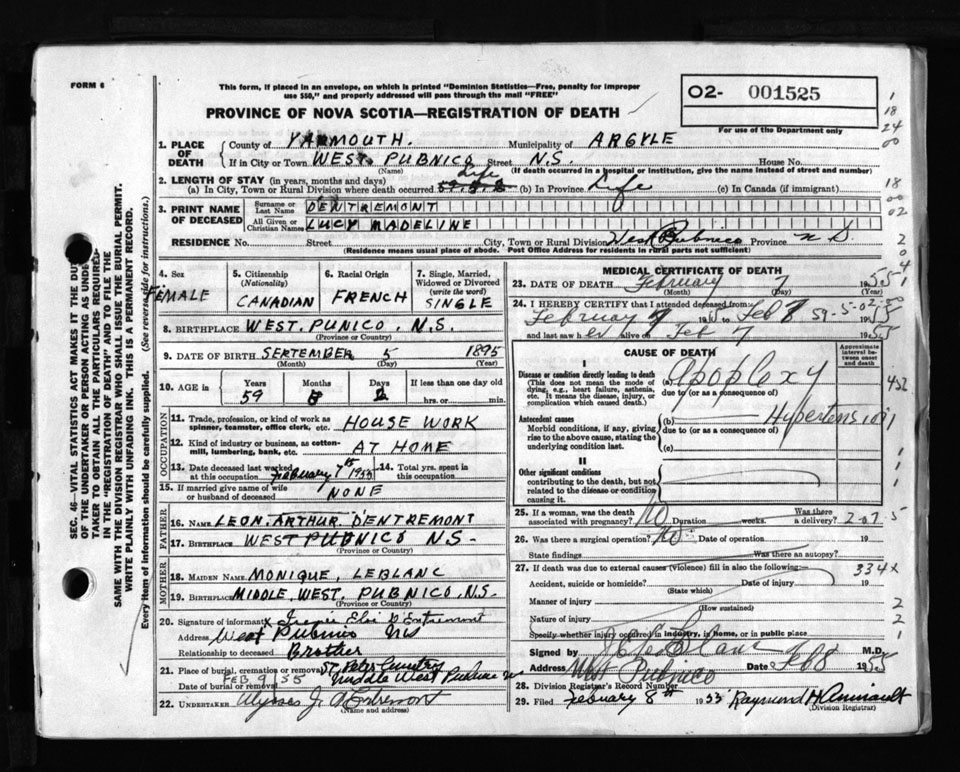 FORM 6
This form, if placed in an envelope, on which is printed "Dominion Statistics—Free, penalty for improper
use $50," and properly addressed will pass through the mail "FREE"
02- 001525
For use of the Department only
PROVINCE OF NOVA SCOTIA—REGISTRATION OF DEATH
1. PLACE OF DEATH
County of YARMOUTH. Municipality of ARGYLE
If in City or Town WEST PUBNICO Street N.S. House No.
(Name) (If death occurred in a hospital or institution, give the name instead of street and number)
2. LENGTH OF STAY (in years, months and days)
(a) In City, Town or Rural Division where death occurred Life (b) In Province Life (c) In Canada (if immigrant)
3. PRINT NAME OF DECEASED
Surname or Last Name DENTREMONT
All Given or Christian Names LUCY MADELINE
RESIDENCE No. Street City, Town or Rural Division West Pubnico Province N S.
(Residence means usual place of abode. Post Office Address for residents in rural parts not sufficient)
4. Sex FEMALE
5. Citizenship (Nationality) CANADIAN
6. Racial Origin FRENCH
7. Single, Married, Widowed or Divorced (write the word) SINGLE
8. BIRTHPLACE WEST. PUNICO. N.S.
(Province or Country)
9. DATE OF BIRTH SEPTEMBER 5 1895
(Month) (Day) (Year)
10. AGE IN Years 59 Months Days If less than one day old
hrs. or min.
OCCUPATION
11. Trade, profession or kind of work as spinner, teamster, office clerk, etc. HOUSE WORK
12. Kind of industry or business, as cotton-mill, lumbering, bank, etc. AT HOME
13. Date deceased last worked at this occupation February 7th 1955 14. Total yrs. spent in this occupation
15. If married give name of wife or husband of deceased NONE
FATHER
16. NAME LEON. ARTHUR. D'ENTREMONT
17. BIRTHPLACE WEST PUBNICO N.S-
(Province or Country)
MOTHER
18. MAIDEN NAME MONIQUE, LEBLANC
19. BIRTHPLACE MIDDLE, WEST, PUBNICO, N.S.
(Province or Country)
20. Signature of informant x Eloi D'Entremont
Address West Pubnico NS
Relationship to deceased Brother
21. Place of burial, cremation or removal St. Peter Cemetery
Middle West Pubnico NS
Date of burial or removal FEB 9/55
22. UNDERTAKER Alysses J. d'Entremont
(Name and address)
MEDICAL CERTIFICATE OF DEATH
23. DATE OF DEATH February 7 1955
(Month) (Day)
24. I HEREBY CERTIFY that I attended deceased from
February 7 1955 to Feb 8 1955
59-5-02
and last saw her alive on Feb 7 1955
CAUSE OF DEATH
Approximate interval between onset and death
I
Disease or condition directly leading to death
(This does not mean the mode of dying, e.g., heart failure, asthenia, etc. It means the disease, injury, or complication which caused death.)
(a) Apoplexy
due to (or as a consequence of)
Antecedent causes
Morbid conditions, if any, giving rise to the above cause, stating the underlying condition last.
(b) Hypertension
due to (or as a consequence of)
(c)
II
Other significant conditions
contributing to the death, but not related to the disease or condition causing it.
25. If a woman, was the death associated with pregnancy? No Duration weeks. Was there a delivery? 2-07-5
26. Was there a surgical operation? No Date of operation 19
State findings Was there an autopsy?
27. If death was due to external causes (violence) fill in also the following:— 334x
Accident, suicide or homicide? Date of injury 19
(State which)
Manner of injury
(How sustained)
Nature of injury
Specify whether injury occurred in industry, in home, or in public place
Signed by LeBlanc M.D.
Address West Pubnico Date Feb 8 1955
28. Division Registrar's Record Number
29. Filed February 8th 1955 Raymond H Amirault
(Division Registrar)
SEC. 46—VITAL STATISTICS ACT MAKES IT THE DUTY
OF THE UNDERTAKER OR PERSON ACTING AS UNDER-
TAKER TO OBTAIN ALL THE PARTICULARS REQUIRED
IN THE "REGISTRATION OF DEATH" AND TO FILE THE
SAME WITH THE DIVISION REGISTRAR WHO SHALL ISSUE THE BURIAL PERMIT.
WRITE PLAINLY WITH UNFADING INK. THIS IS A PERMANENT RECORD.
Every item of information should be carefully supplied. (See reverse side for instructions.)